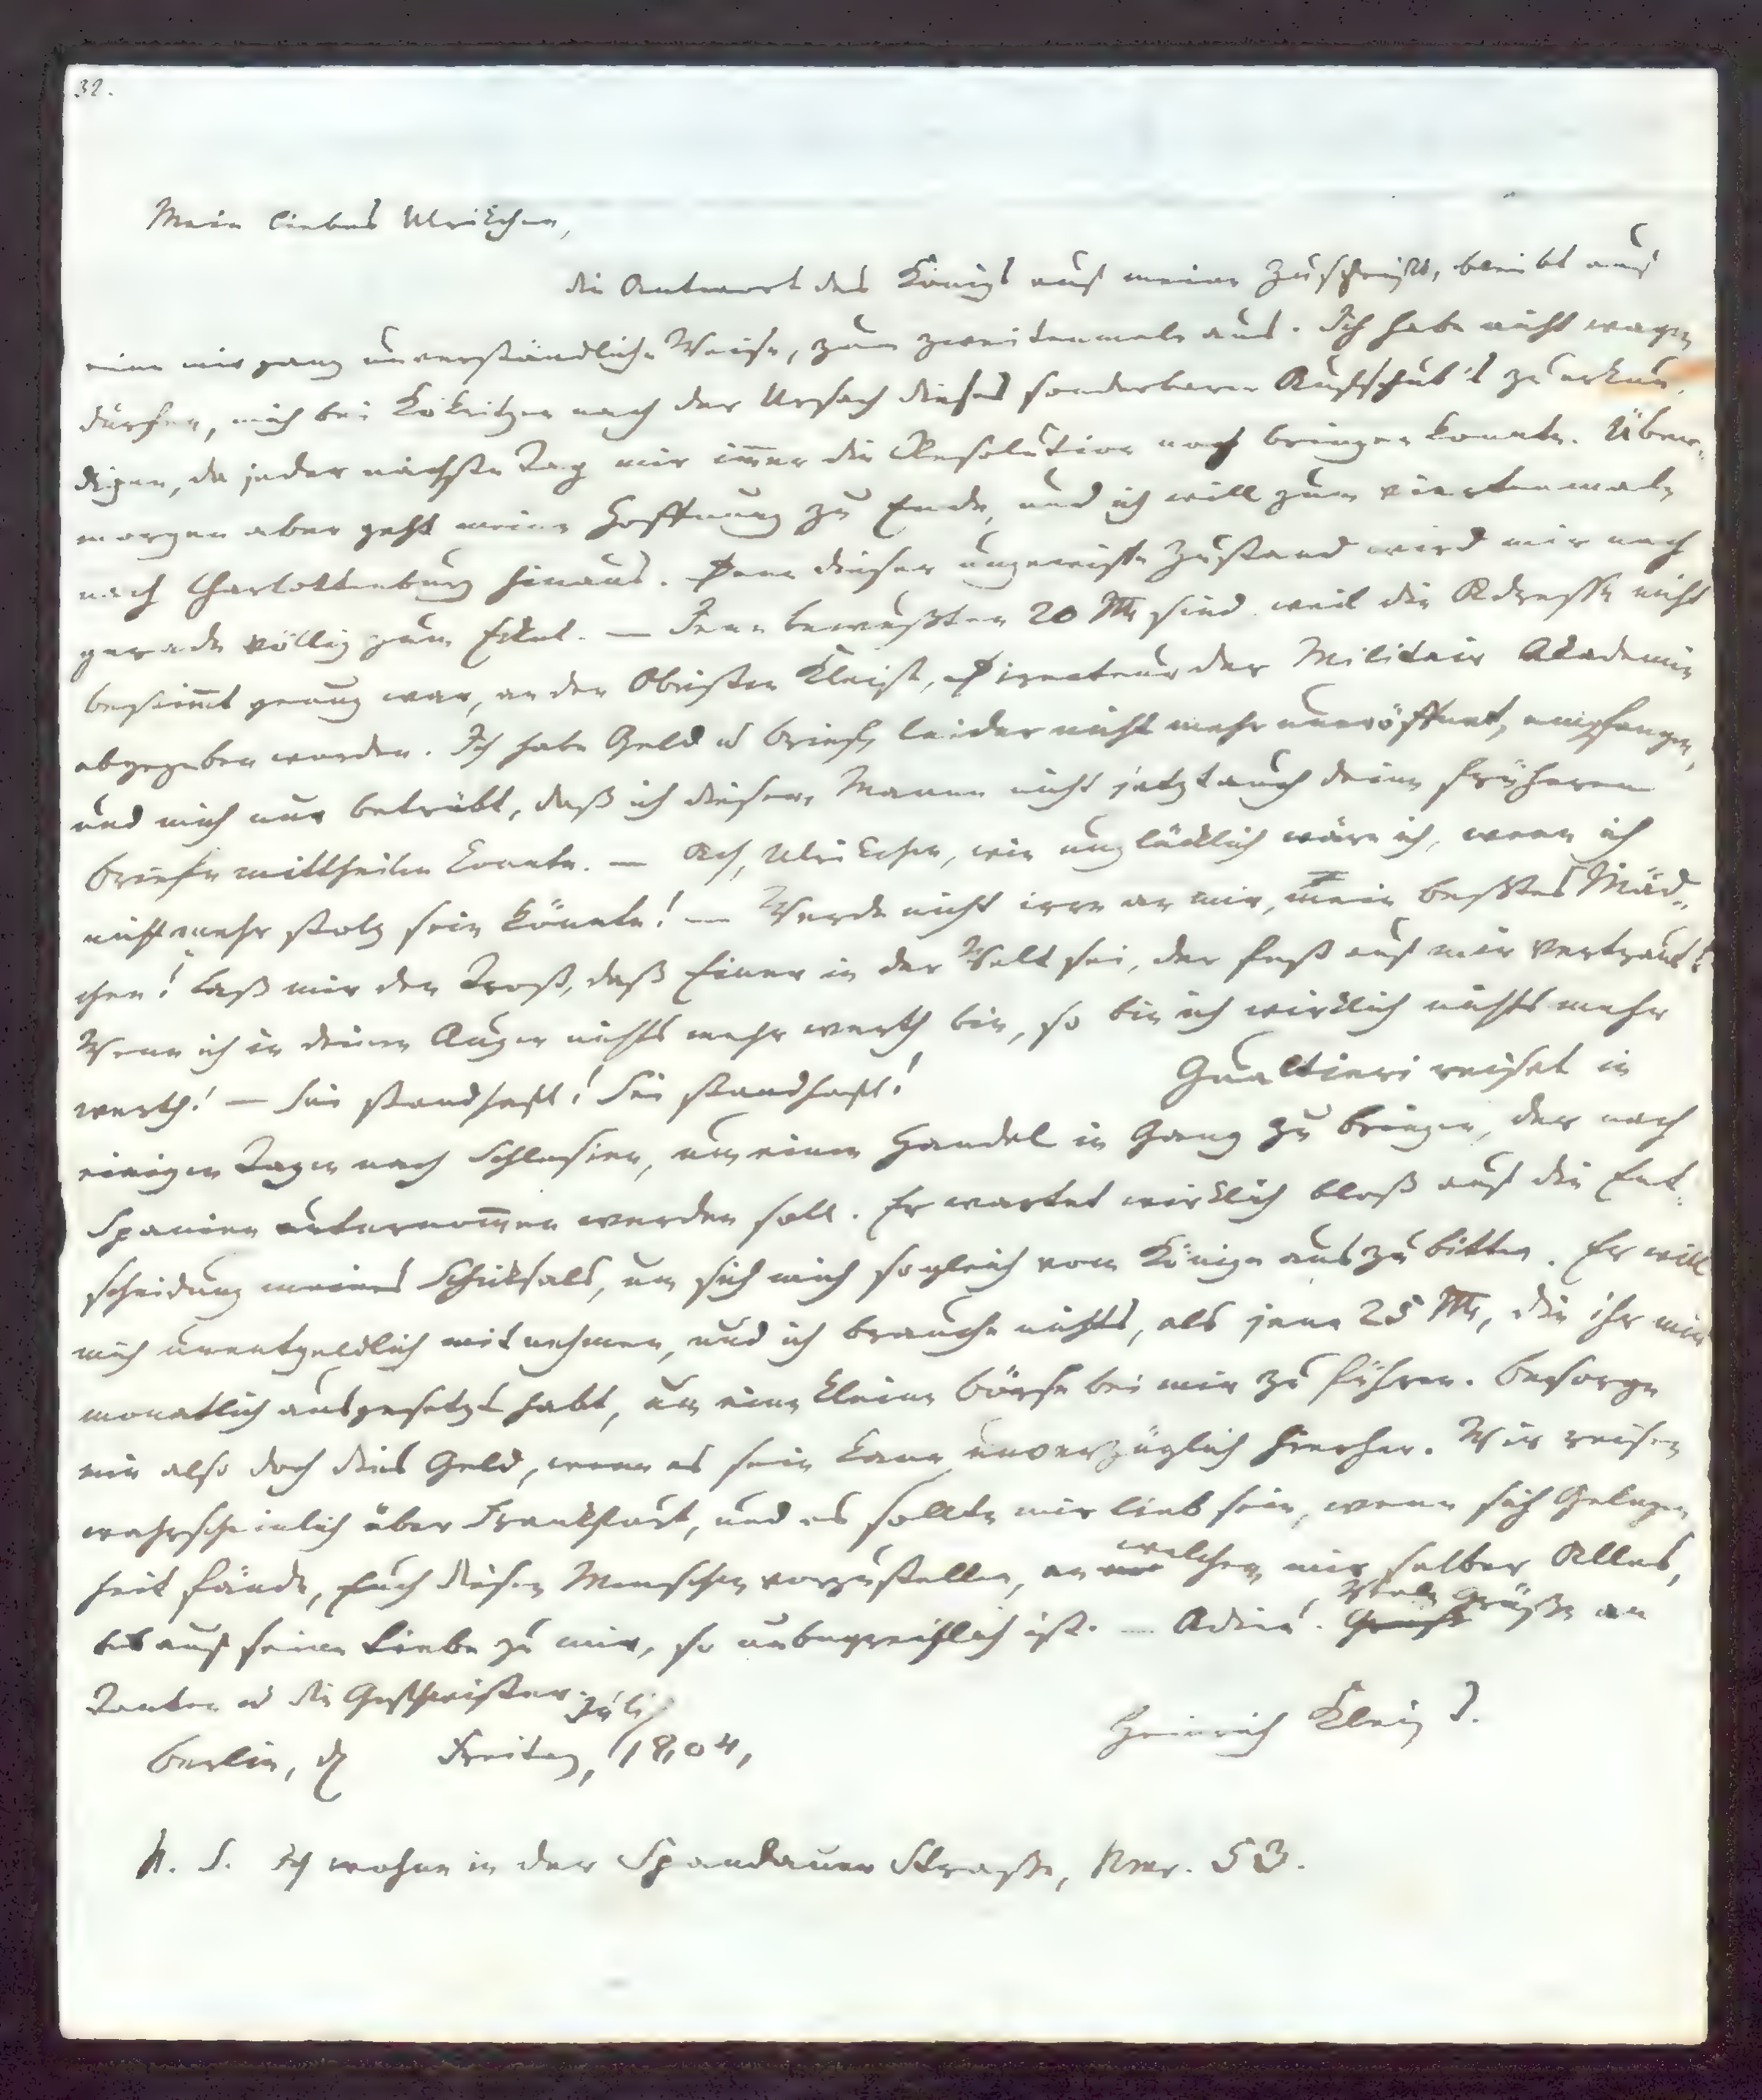 32.
Mein liebes Ulrikchen,
die Antwort des Königs auf meine Zuschrift, bleibt auf
eine mir ganz unverständliche Weise, zum zweitenmale aus. Ich habe nicht wagen
dürfen, mich bei Kökritzen nach der Ursach dieses sonderbaren Aufschub's zu erkun-
digen, da jeder nächste Tag mir im̅er die Resolution noch bringen konnte. Über-
morgen aber geht meine Hoffnung zu Ende, und ich will zum viertenmale
nach Charlottenburg hinaus. Denn dieser ungewisse Zustand wird mir nach
gerade völlig zum Eckel. — Jene bewußten 20 Rth sind weil die Adresse nicht
bestim̅t genug war, an den Obristen Kleist, Directeur der Militair Akademie
abgegeben worden. Ich habe Geld u Brief, leider nicht mehr uneröffnet, empfangen,
und mich nur betrübt, daß ich diesem Manne nicht jetzt auch deine früheren
Briefe mittheilen konnte. — Ach, Ulrickchen, wie unglücklich wäre ich, wenn ich
nicht mehr stolz sein könnte! — Werde nicht irre an mir, mein bestes Mäd-
chen! Laß mir den Trost, daß Einer in der Welt sei, der fest auf mir vertraut!
Wenn ich in deinen Augen nichts mehr werth bin, so bin ich wirklich nichts mehr
werth! — Sei standhaft! Sei standhaft!
Gualtieri reiset in
einigen Tagen nach Schlesien, um einen Handel in Gang zu bringen, der nach
Spanien unternom̅en werden soll. Er wartet wirklich bloß auf die Ent-
scheidung meines Schicksals, um sich mich sogleich vom Könige auszubitten. Er will
mich unentgeldlich mitnehmen, und ich brauche nichts, als jene 25 Rth, die ihr mir
monatlich ausgesetzt habt, um eine kleine Börse bei mir zu führen. Besorge
mir also doch dies Geld, wenn es sein kann unverzüglich hierher. Wir reisen
wahrscheinlich über Frankfurt, und es sollte mir lieb sein, wenn sich Gelegen
heit fände, Euch diesen Menschen vorzustellen, an welchem mir selber Alles,
bis auf seine Liebe zu mir, so unbegreiflich ist. — Adieu. Viele Grüße an
Tanten u die Geschwister.
Berlin, d Freitag, Juli 1804,
Heinrich Kleist.
N. S. Ich wohne in der Spandauer Straße, Nmr. 53.